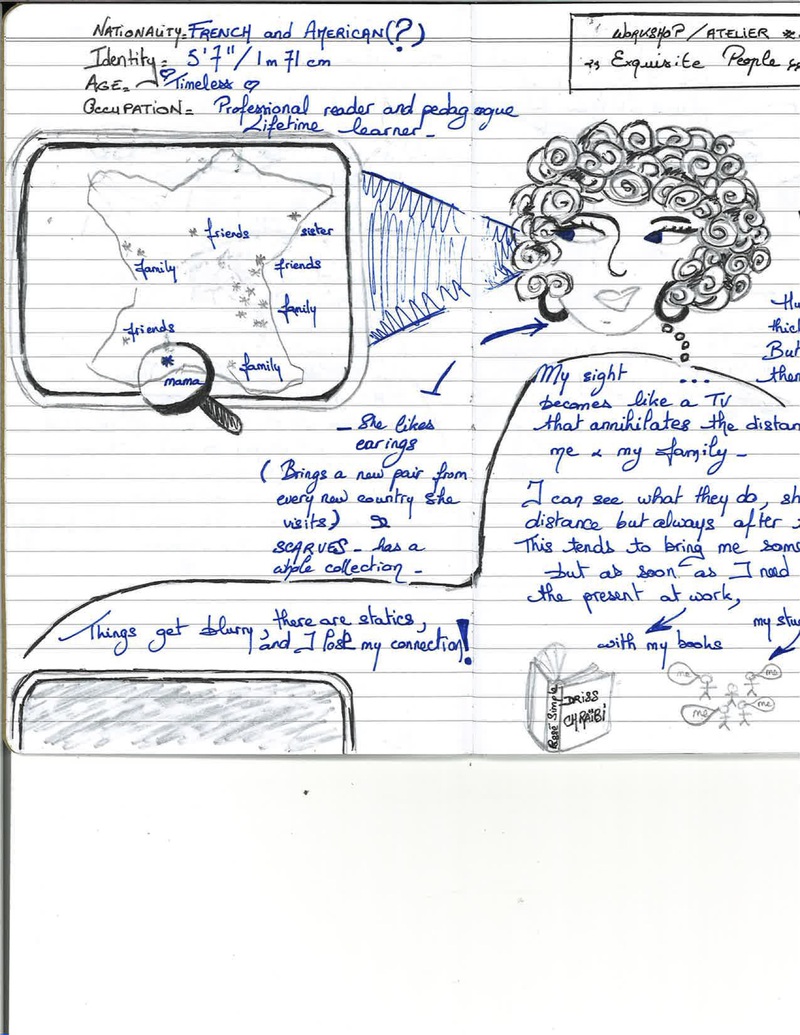 NATIONALITY= FRENCH and AMERICAN(?)
Identity= 5'7"/1m71 cm
AGE= ♡Timeless♡
OCCUPATION= Professional reader and pedagogue
Lifetime learner-
WORKSHOP/ATELIER
Exquisite People
friends
sister
family
friends
family
friends
family
mama
- She likes
earings
(Brings a new pair from
every new country she
visits)
SCARVES - has a
whole collection -
thick
But
My sight ...
becomes like a TV
that annihilates the distan
me & my family -
I can see what they do, sh
distance but always after
This tends to bring me som
but as soon as I need
the present at work,
with my books
my stu
Things get blurry, there are statics,
and I lost my connection!
Passé Simple
DRISS
CHRAÏBI
me
me
me
me